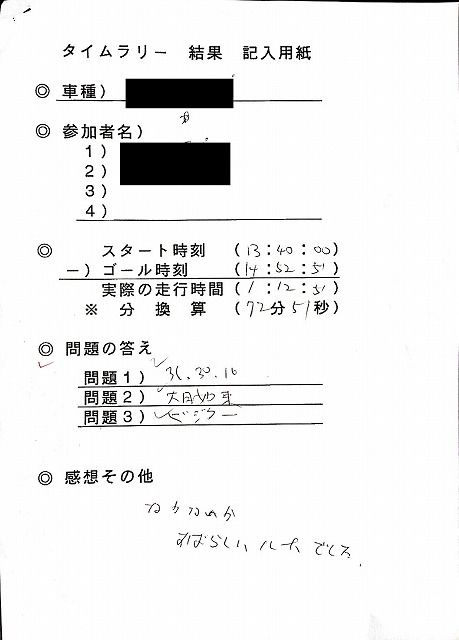 タイムラリー 結果 記入用紙
◎ 車種)
◎ 参加者名)
1)
2)
3)
4)
◎ スタート時刻 (13:40:00)
ー) ゴール時刻 (14:52:51)
実際の走行時間 (1:12:51)
※ 分換算 (72分51秒)
◎ 問題の答え
問題1) 31.30.16
問題2)
問題3) ビジター
◎ 感想その他
なかなか
すばらしいルートでした.